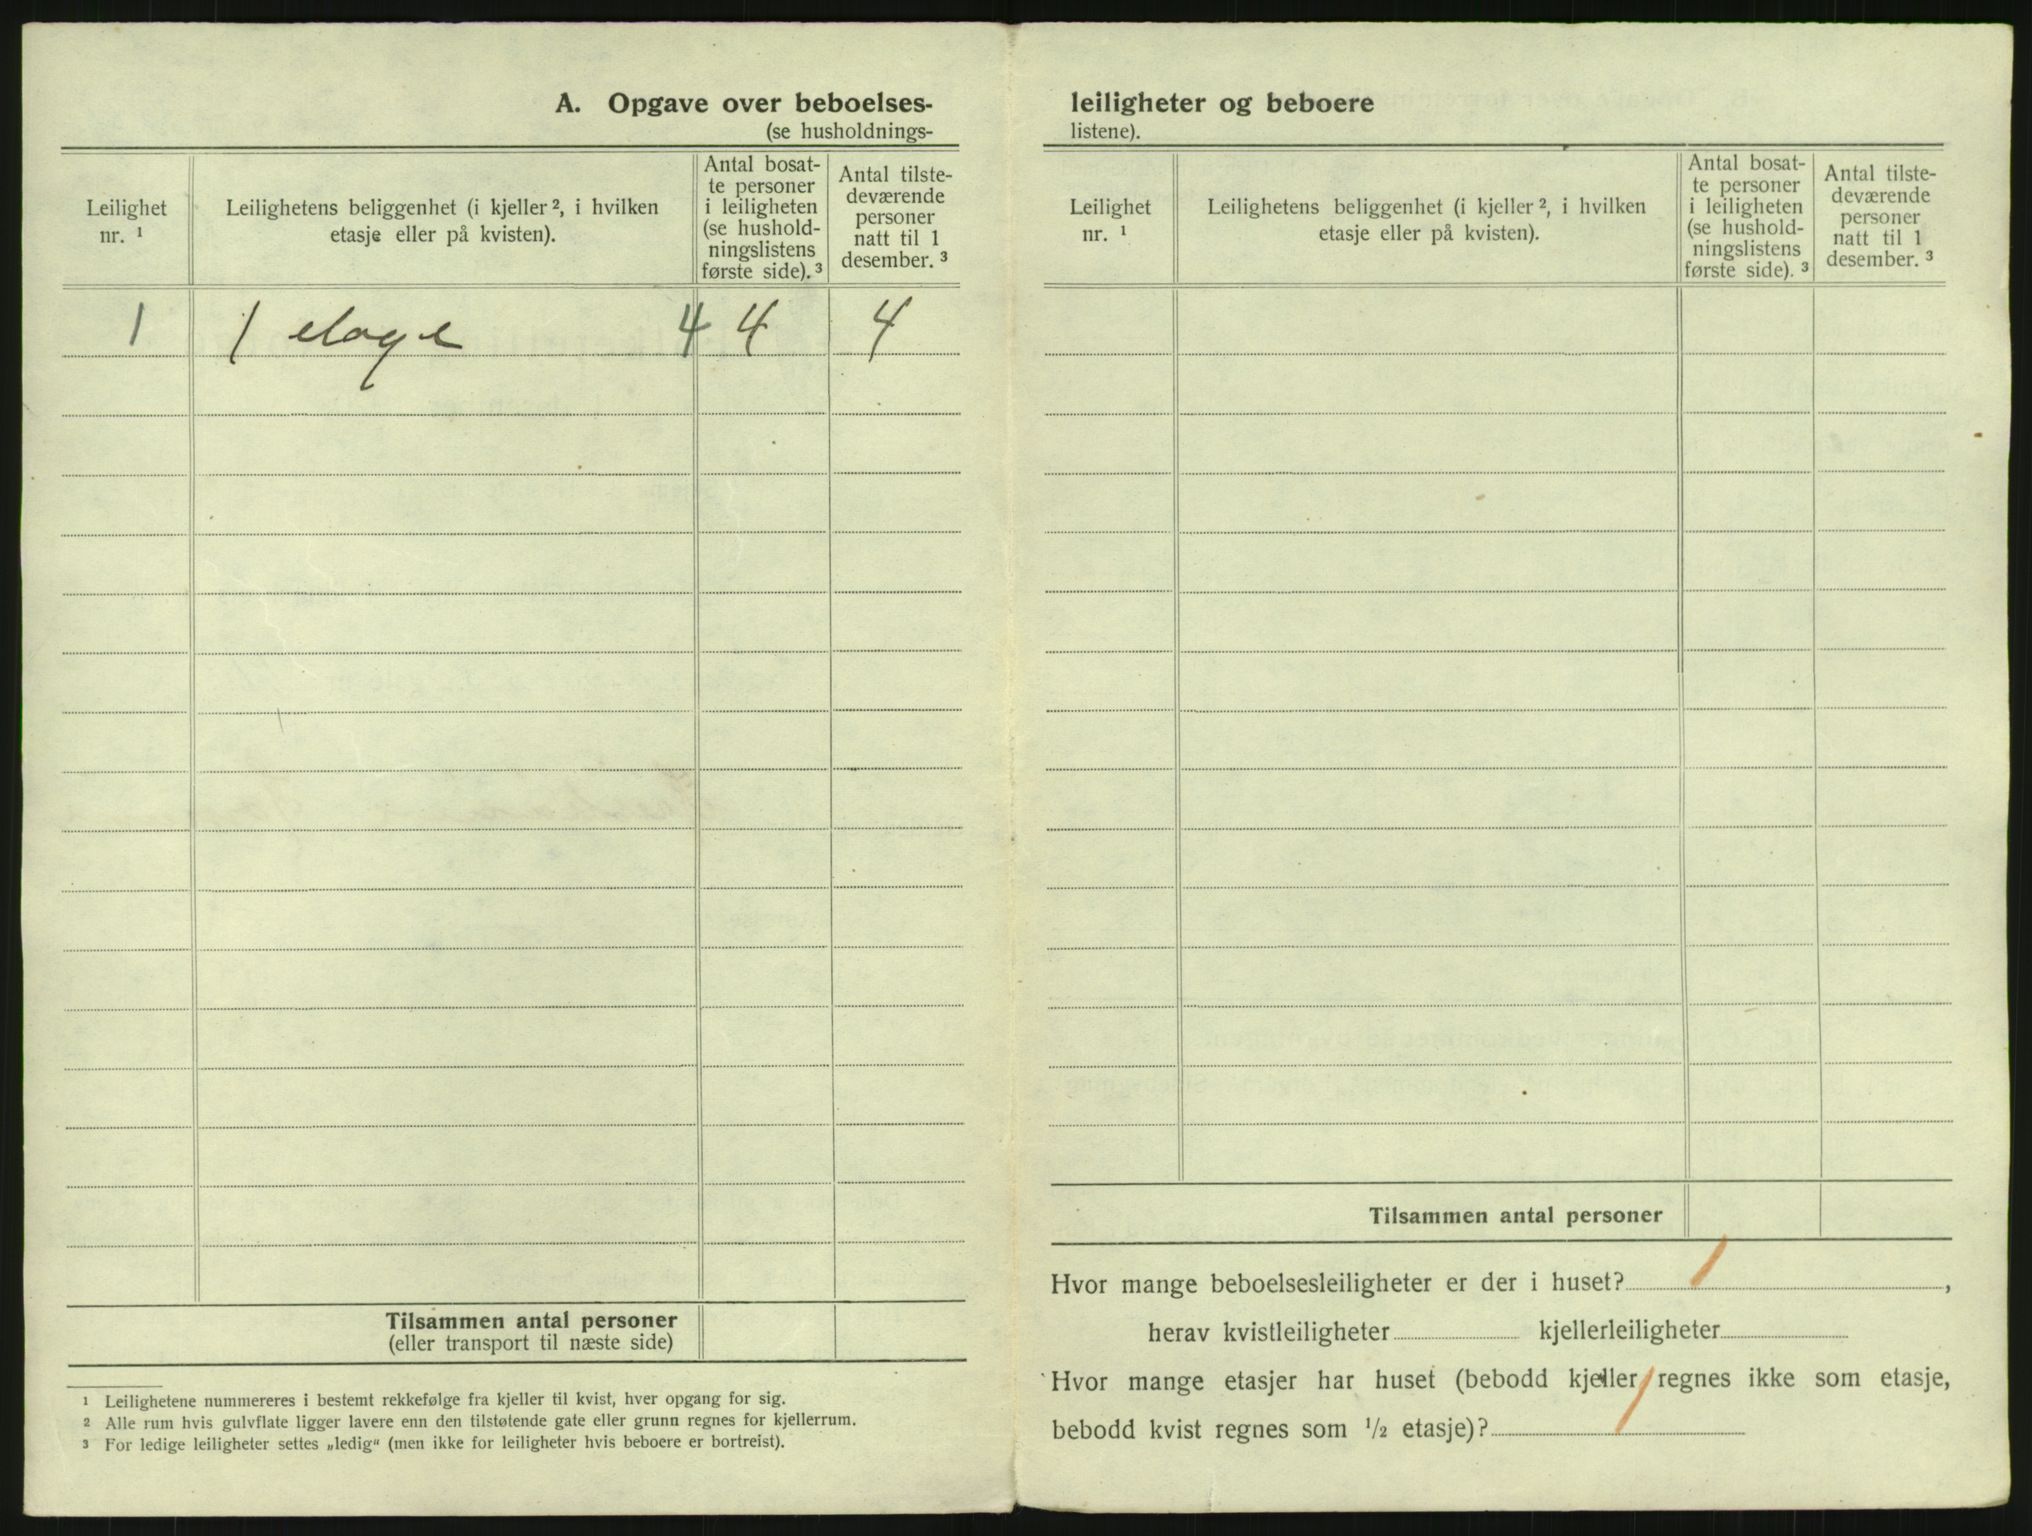 A. Opgave over beboelses-
(se husholdnings-
Leilighet
nr. ¹
Leilighetens beliggenhet (i kjeller ², i hvilken
etasje eller på kvisten).
Antal bosat-
te personer
i leiligheten
(se hushold-
ningslistens
første side). ³
Antal tilste-
deværende
personer
natt til 1
desember. ³
1 1 etage 4 4 4
Tilsammen antal personer
(eller transport til næste side)
¹ Leilighetene nummereres i bestemt rekkefølge fra kjeller til kvist, hver opgang for sig.
² Alle rum hvis gulvflate ligger lavere enn den tilstøtende gate eller grunn regnes for kjellerrum.
³ For ledige leiligheter settes „ledig“ (men ikke for leiligheter hvis beboere er bortreist).
leiligheter og beboere
listene).
Leilighet
nr. ¹
Leilighetens beliggenhet (i kjeller ², i hvilken
etasje eller på kvisten).
Antal bosat-
te personer
i leiligheten
(se hushold-
ningslistens
første side). ³
Antal tilste-
deværende
personer
natt til 1
desember. ³
Tilsammen antal personer
Hvor mange beboelsesleiligheter er der i huset? 1,
herav kvistleiligheter kjellerleiligheter
Hvor mange etasjer har huset (bebodd kjeller regnes ikke som etasje,
bebodd kvist regnes som ½ etasje)? 1